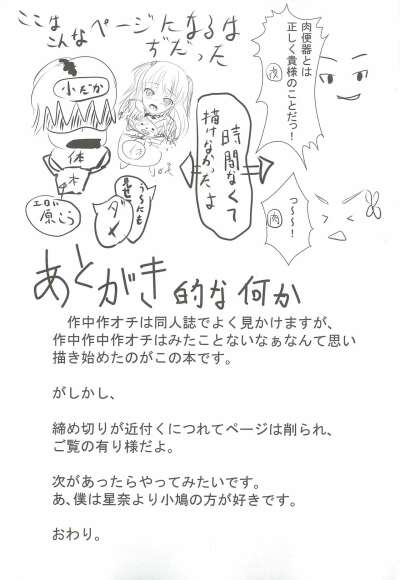 ここは
こんなページになるは
ずだった
肉便器とは
正しく貴様のことだっ!
肉
小だか
体
時間なくて
描けなかったよ
っ~~!
肉
ダメ
あとがき的な何か
作中作オチは同人誌でよく見かけますが、
作中作中作オチはみたことないなぁなんて思い
描き始めたのがこの本です。
がしかし、
締め切りが近付くにつれてページは削られ、
ご覧の有り様だよ。
次があったらやってみたいです。
あ、僕は星奈より小鳩の方が好きです。
おわり。